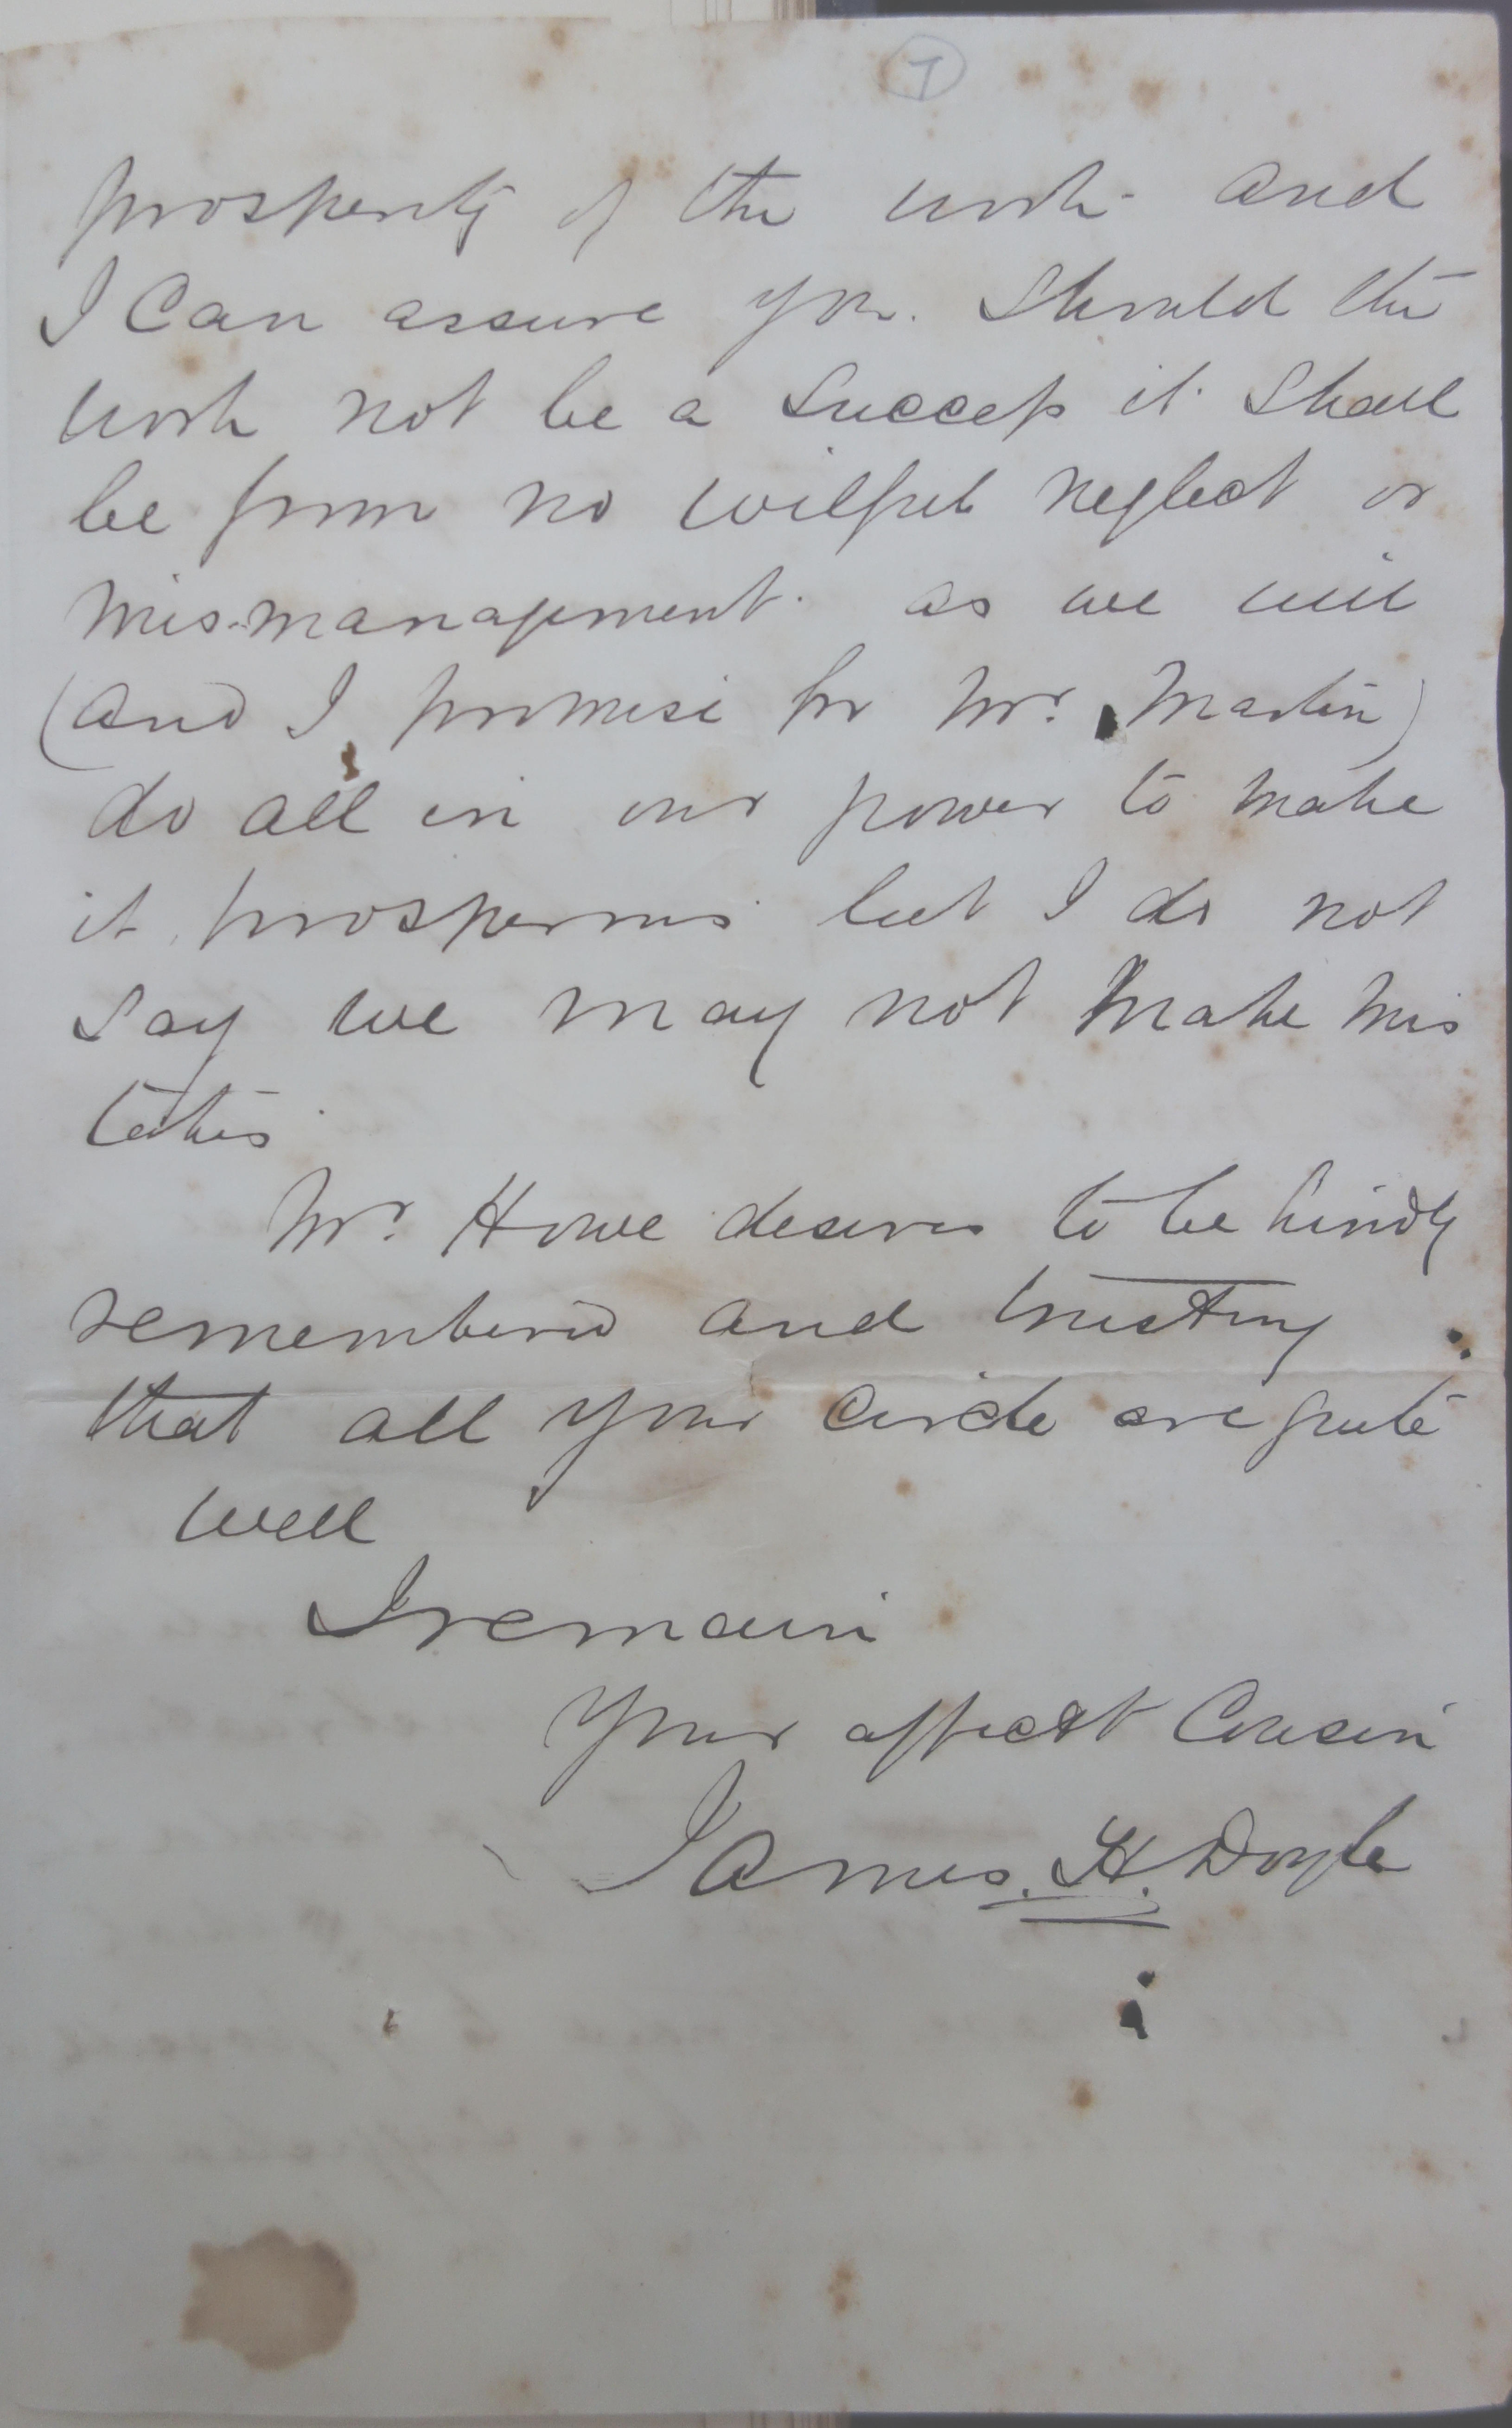 7
prosperity of the work and
I Can assure you. Should the
work not be a Success it Shall
be from no wilful neglect or
mis-management. as we will
(and I promise for Mr. Martin)
do all in our power to make
it prosperous but I do not
say we may not make mis
takes.
Mr. Howe desires to be kindly
remembered and trusting
that all your circle are quite
well
I remain
Your affect Cousin
James. H. Doyle